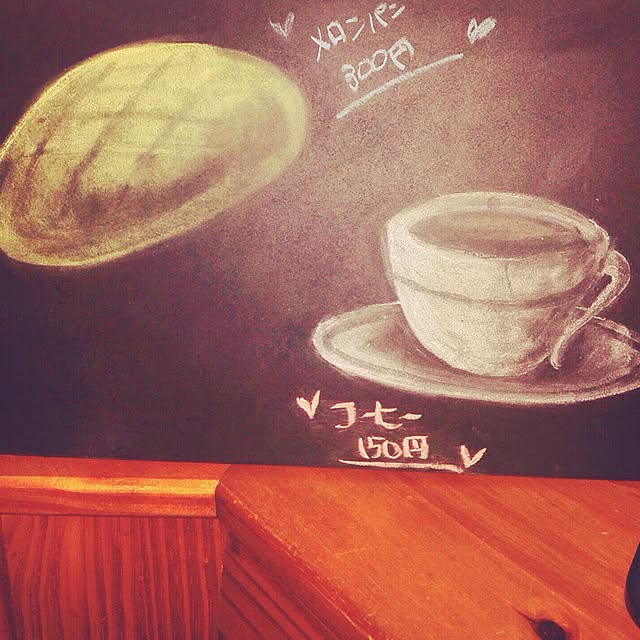 メロンパン
300円
コーヒー
150円